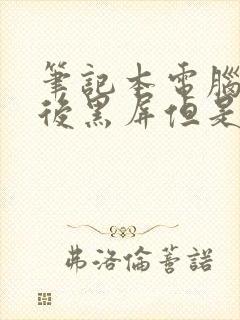 筆記本電腦
後黑屏但是
弗洛倫蒈諾